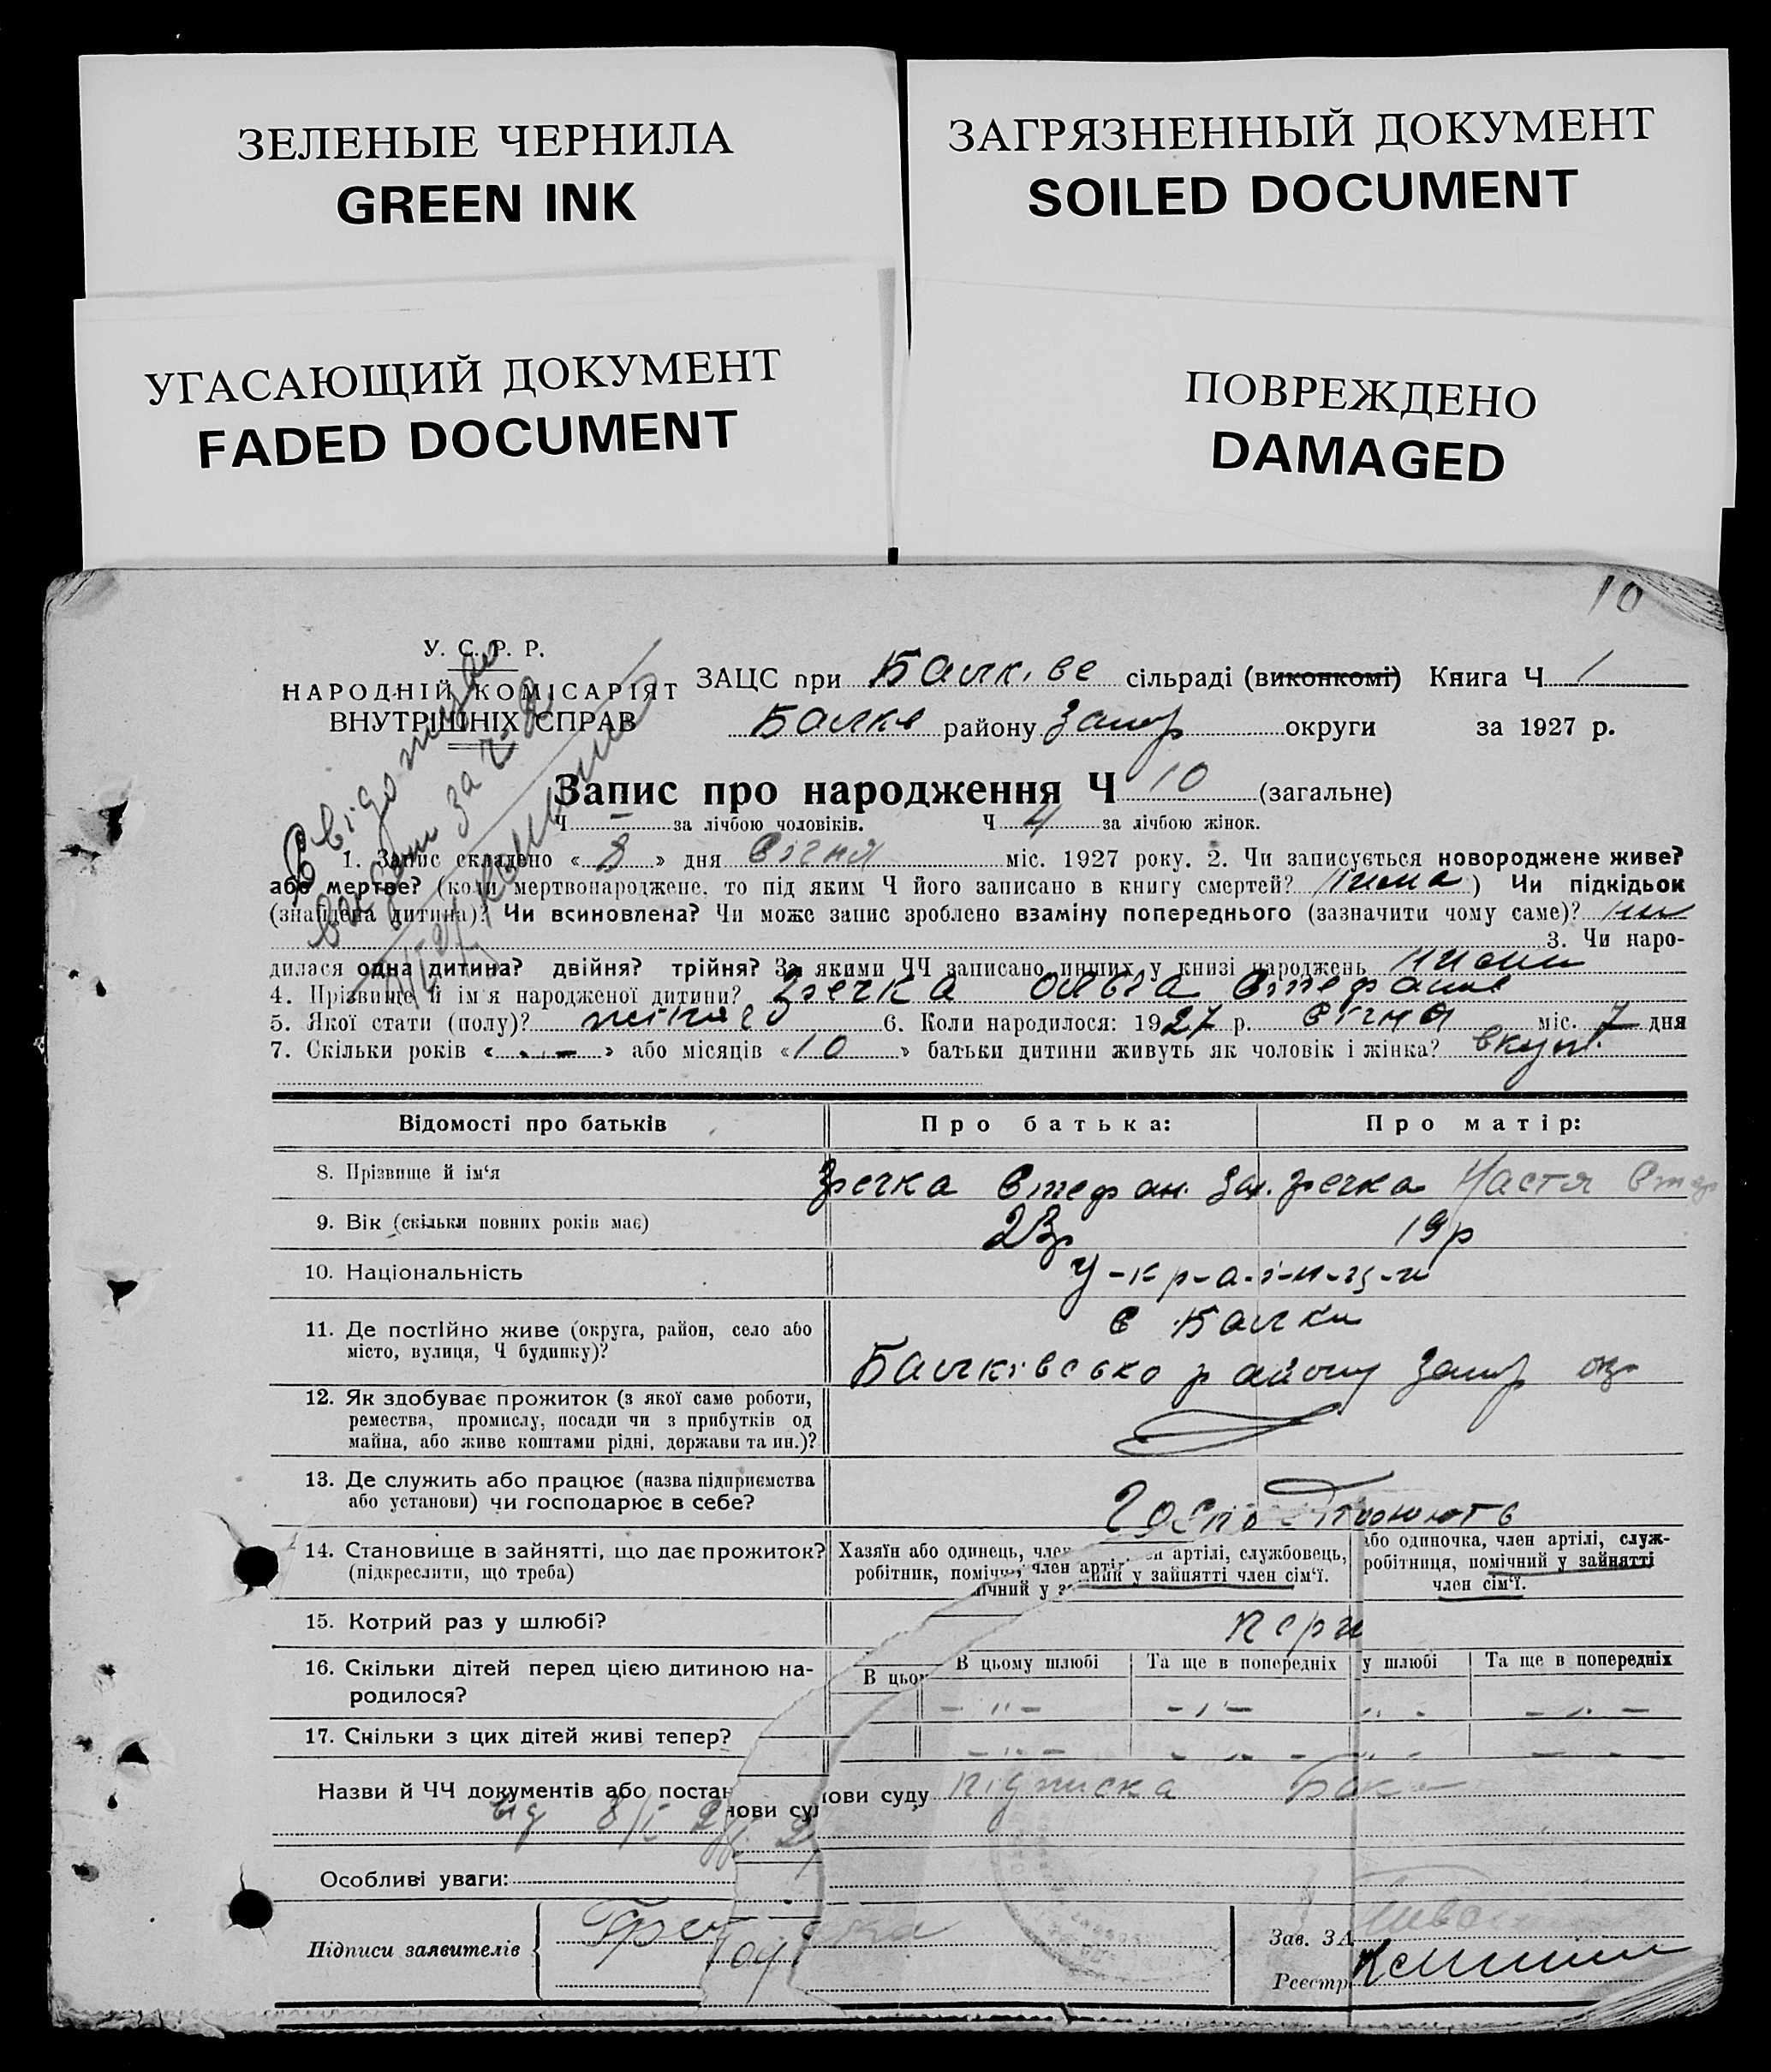 ЗЕЛЕНЫЕ ЧЕРНИЛА
GREEN INK
ЗАГРЯЗНЕННЫЙ ДОКУМЕНТ
SOILED DOCUMENT
УГАСАЮЩИЙ ДОКУМЕНТ
FADED DOCUMENT
ПОВРЕЖДЕНО
DAMAGED
10
У. С. Р. Р.
НАРОДНІЙ КОМІСАРІЯТ
ВНУТРІШНІХ СПРАВ
ЗАЦС при Балк. ве сільраді (виконкомі) Книга Ч 1
Балкв району Запор округи за 1927 р.
Запис про народження Ч 10 (загальне)
Ч — за лічбою чоловіків. Ч 4 за лічбою жінок.
1. Запис складено « 8 » дня Січня міс. 1927 року. 2. Чи записується новороджене живе?
або мертве? (коли мертвонароджене, то під яким Ч його записано в книгу смертей? нема ) Чи підкідьок
(знайдена дитина)? Чи всиновлена? Чи може запис зроблено взаміну попереднього (зазначити чому саме)? ни
3. Чи наро-
дилася одна дитина? двійня? трійня? За якими ЧЧ записано инших у книзі народжень
4. Прізвище й ім'я народженої дитини? Гречка Ольга Степан
5. Якої стати (полу)? жіноч 6. Коли народилося: 1927 р. Січня міс. 7 дня
7. Скільки років « - » або місяців « 10 » батьки дитини живуть як чоловік і жінка? вкупі
Відомості про батьків Про батька: Про матір:
8. Прізвище й ім'я Гречка Степан. Гречка Настя
9. Вік (скільки повних років має) 23р 19р
10. Національність У-к-р-а-ї-н-ц-и
11. Де постійно живе (округа, район, село або
місто, вулиця, Ч будинку)?
с Балки
Балківсько району Запор окр
12. Як здобуває прожиток (з якої саме роботи,
ремества, промислу, посади чи з прибутків од
майна, або живе коштами рідні, держави та ин.)?
13. Де служить або працює (назва підприємства
або установи) чи господарює в себе?
14. Становище в зайнятті, що дає прожиток?
(підкреслити, що треба)
Хазяїн або одинець, член артілі, службовець,
робітник, помічний у зайнятті член сім'ї.
або одиночка, член артілі, служ-
робітниця, помічний у зайнятті
член сім'ї.
15. Котрий раз у шлюбі? перш
16. Скільки дітей перед цією дитиною на-
родилося?
В цьо В цьому шлюбі Та ще в попередніх у шлюбі Та ще в попередніх
17. Скільки з цих дітей живі тепер?
Назви й ЧЧ документів або постанови суду підписка
від 8/I 27
Особливі уваги:
Підписи заявителів
Зав. ЗА
Реєстр.